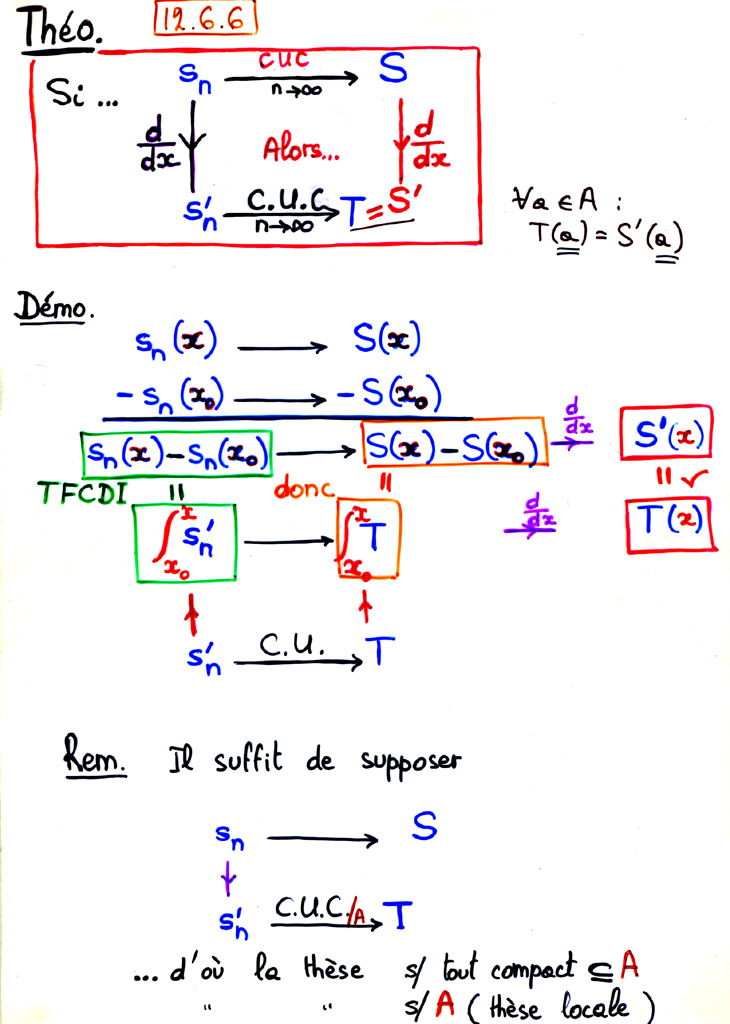 Théo. 12.6.6
Si ... sₙ —CUC, n→∞→ S
d/dx Alors... d/dx
s'ₙ —C.U.C, n→∞→ T = S'
∀a ∈ A :
T(a) = S'(a)
Démo.
sₙ(x) → S(x)
− sₙ(x₀) → − S(x₀)
sₙ(x) − sₙ(x₀) → S(x) − S(x₀) d/dx → S'(x)
TFCDI || donc || || ✓
∫ₓ₀ˣ s'ₙ → ∫ₓ₀ˣ T d/dx → T(x)
s'ₙ —C.U.→ T
Rem. Il suffit de supposer
sₙ → S
s'ₙ —C.U.C./A→ T
... d'où la thèse s/ tout compact ⊆ A
" " s/ A ( thèse locale )